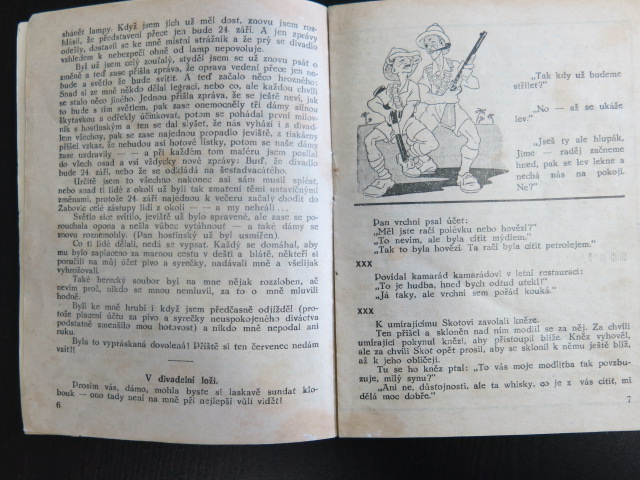 shánět lampy. Když jsem jich už měl dost, znovu jsem roz-
hlásil, že představení přece jen bude 24. září. A jen zprávy
odešly, dostavil se ke mně místní strážník a že prý se divadlo
vzhledem k nebezpečí ohně od lamp nepovoluje.
Byl už jsem celý zoufalý, styděl jsem se už znovu psát o
změně a teď zase přišla zpráva, že oprava vedení přece jen ne-
bude a světlo že bude svítit. A teď začalo něco hrozného:
Snad si ze mně někdo dělal legraci, nebo co, ale každou chvíli
se stalo něco jiného. Jednou přišla zpráva, že se ještě neví, jak
to bude s tím světlem, pak zase onemocněly tři dámy silnou
škytavkou a odřekly účinkovat, potom se pohádal první milov-
ník s hostinským a ten se dal slyšet, že nás vyhází i s divad-
lem všechny, pak se zase najednou propadlo jeviště, z tiskárny
přišel vzkaz, že nebudou asi hotové lístky, potom se naše dámy
zase uzdravily — — a při každém tom maléru jsem posílal
do všech osad a vsí vždycky nové zprávy: Buď, že divadlo
bude 24. září, nebo že se odkládá na šestadvacátého.
Určitě jsem to všechno nakonec asi sám musil splést,
nebo snad ti lidé z okolí už byli tak zmatení těmi ustavičnými
změnami, protože 24. září najednou k večeru začaly chodit do
Žabovic celé zástupy lidí z okolí — — a my nehráli...
Světlo sice svítilo, jeviště už bylo spravené, ale zase se po-
rouchala opona a nešla vůbec vytáhnout — a také dámy se
znovu roznemohly. (Pan hostinský už byl usmířen).
Co ti lidé dělali, nedá se vypsat. Každý se domáhal, aby
mu bylo zaplaceno za marnou cestu v dešti a blátě, někteří si
poručili na můj účet pivo a syrečky, nadávali mně a všelijak
vyhrožovali.
Také herecký soubor byl na mne nějak rozzloben, ač
nevím proč, nikdo se mnou nemluvil, za to o mně mluvili
hodně.
Byli ke mně hrubí i když jsem předčasně odjížděl (pro-
tože placení účtu za pivo a syrečky neuspokojeného diváctva
podstatně zmenšilo mou hotovost) a nikdo mně nepodal ani
ruku.
Byla to vypráskaná dovolená! Příště si ten červenec nedám
vzíti!
V divadelní loži.
Prosím vás, dámo, mohla byste si laskavě sundat klo-
bouk — ono tady není na mně při nejlepší vůli vidět!
6
„Tak kdy už budeme
střílet?"
„No — až se ukáže
lev."
„Jseš ty ale hlupák,
Jime — raděj začneme
hned, pak se lev lekne a
nechá nás na pokoji.
Ne?"
Pan vrchní psal účet:
„Měl jste ráčí polévku nebo hovězí?"
„To nevím, ale byla cítit mýdlem."
„Tak to byla hovězí. Ta račí byla cítit petrolejem."
xxx
Povídal kamarád kamarádovi v letní restauraci:
„To je hudba, hned bych odtud utekl!"
„Já taky, ale vrchní sem pořád kouká."
xxx
K umírajícímu Skotovi zavolali kněze.
Ten přišel a skloněn nad ním modlil se za něj. Za chvíli
umírající pokynul knězi, aby přistoupil blíže. Kněz vyhověl,
ale za chvíli Skot opět prosil, aby se sklonil k němu ještě blíž,
až k jeho obličeji.
Tu se ho kněz ptal: „To vás moje modlitba tak povzbu-
zuje, milý synu?"
„Ani ne, důstojnosti, ale ta whisky, co je z vás cítit, mi
dělá moc dobře."
7